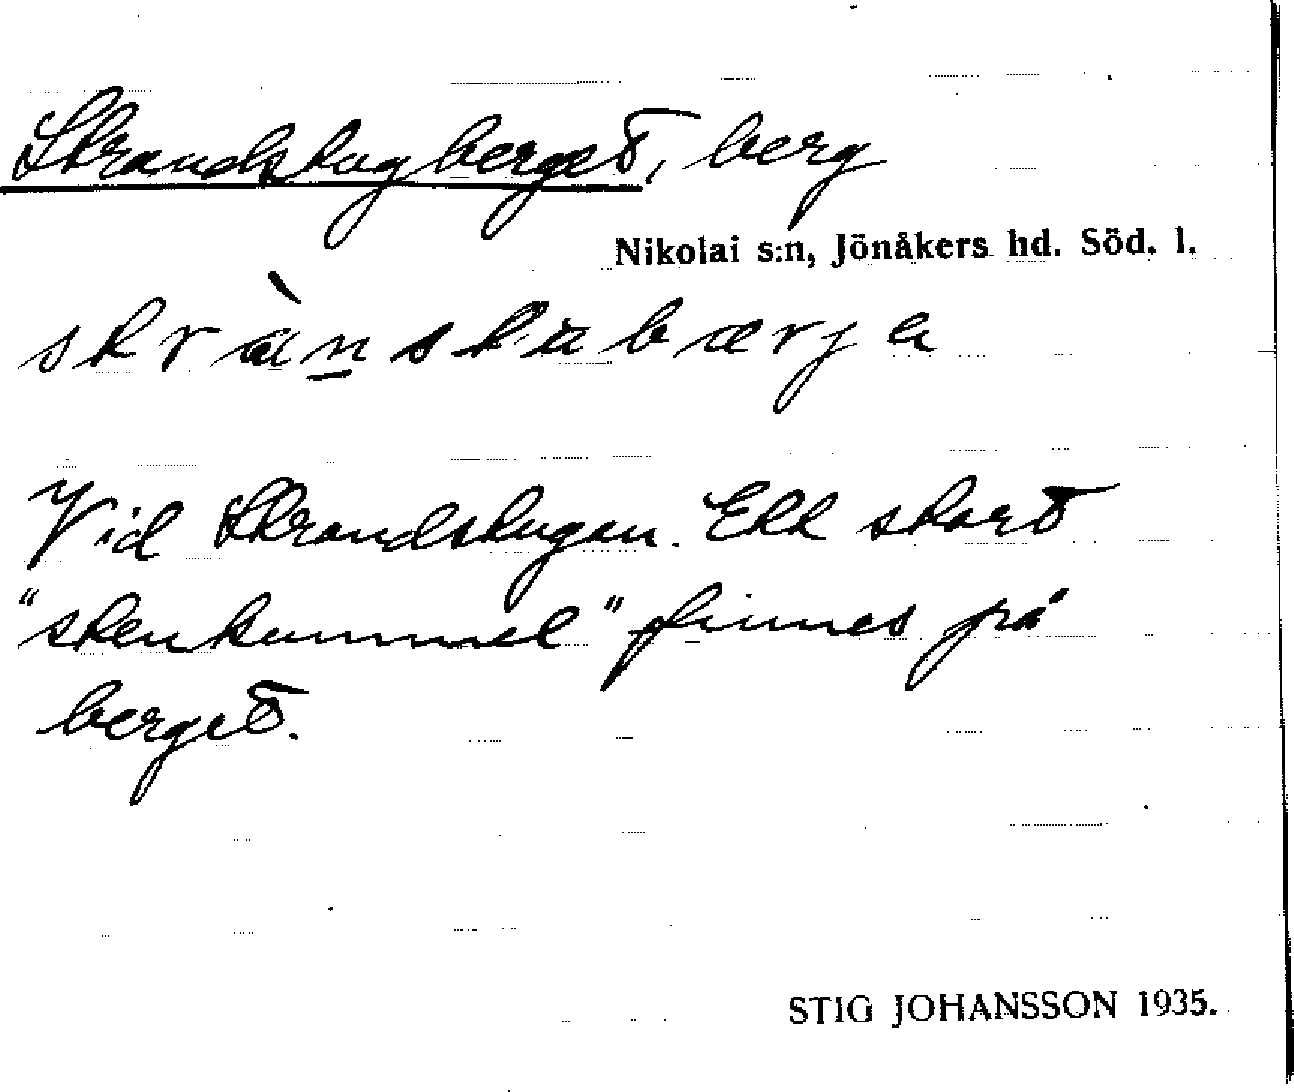 Strandskogberget, berg
Nikolai s:n, Jönåkers hd. Söd. l.
Vid Strandskogen. Ett stort
"stenkummel" finnes på
berget.
STIG JOHANSSON 1935.